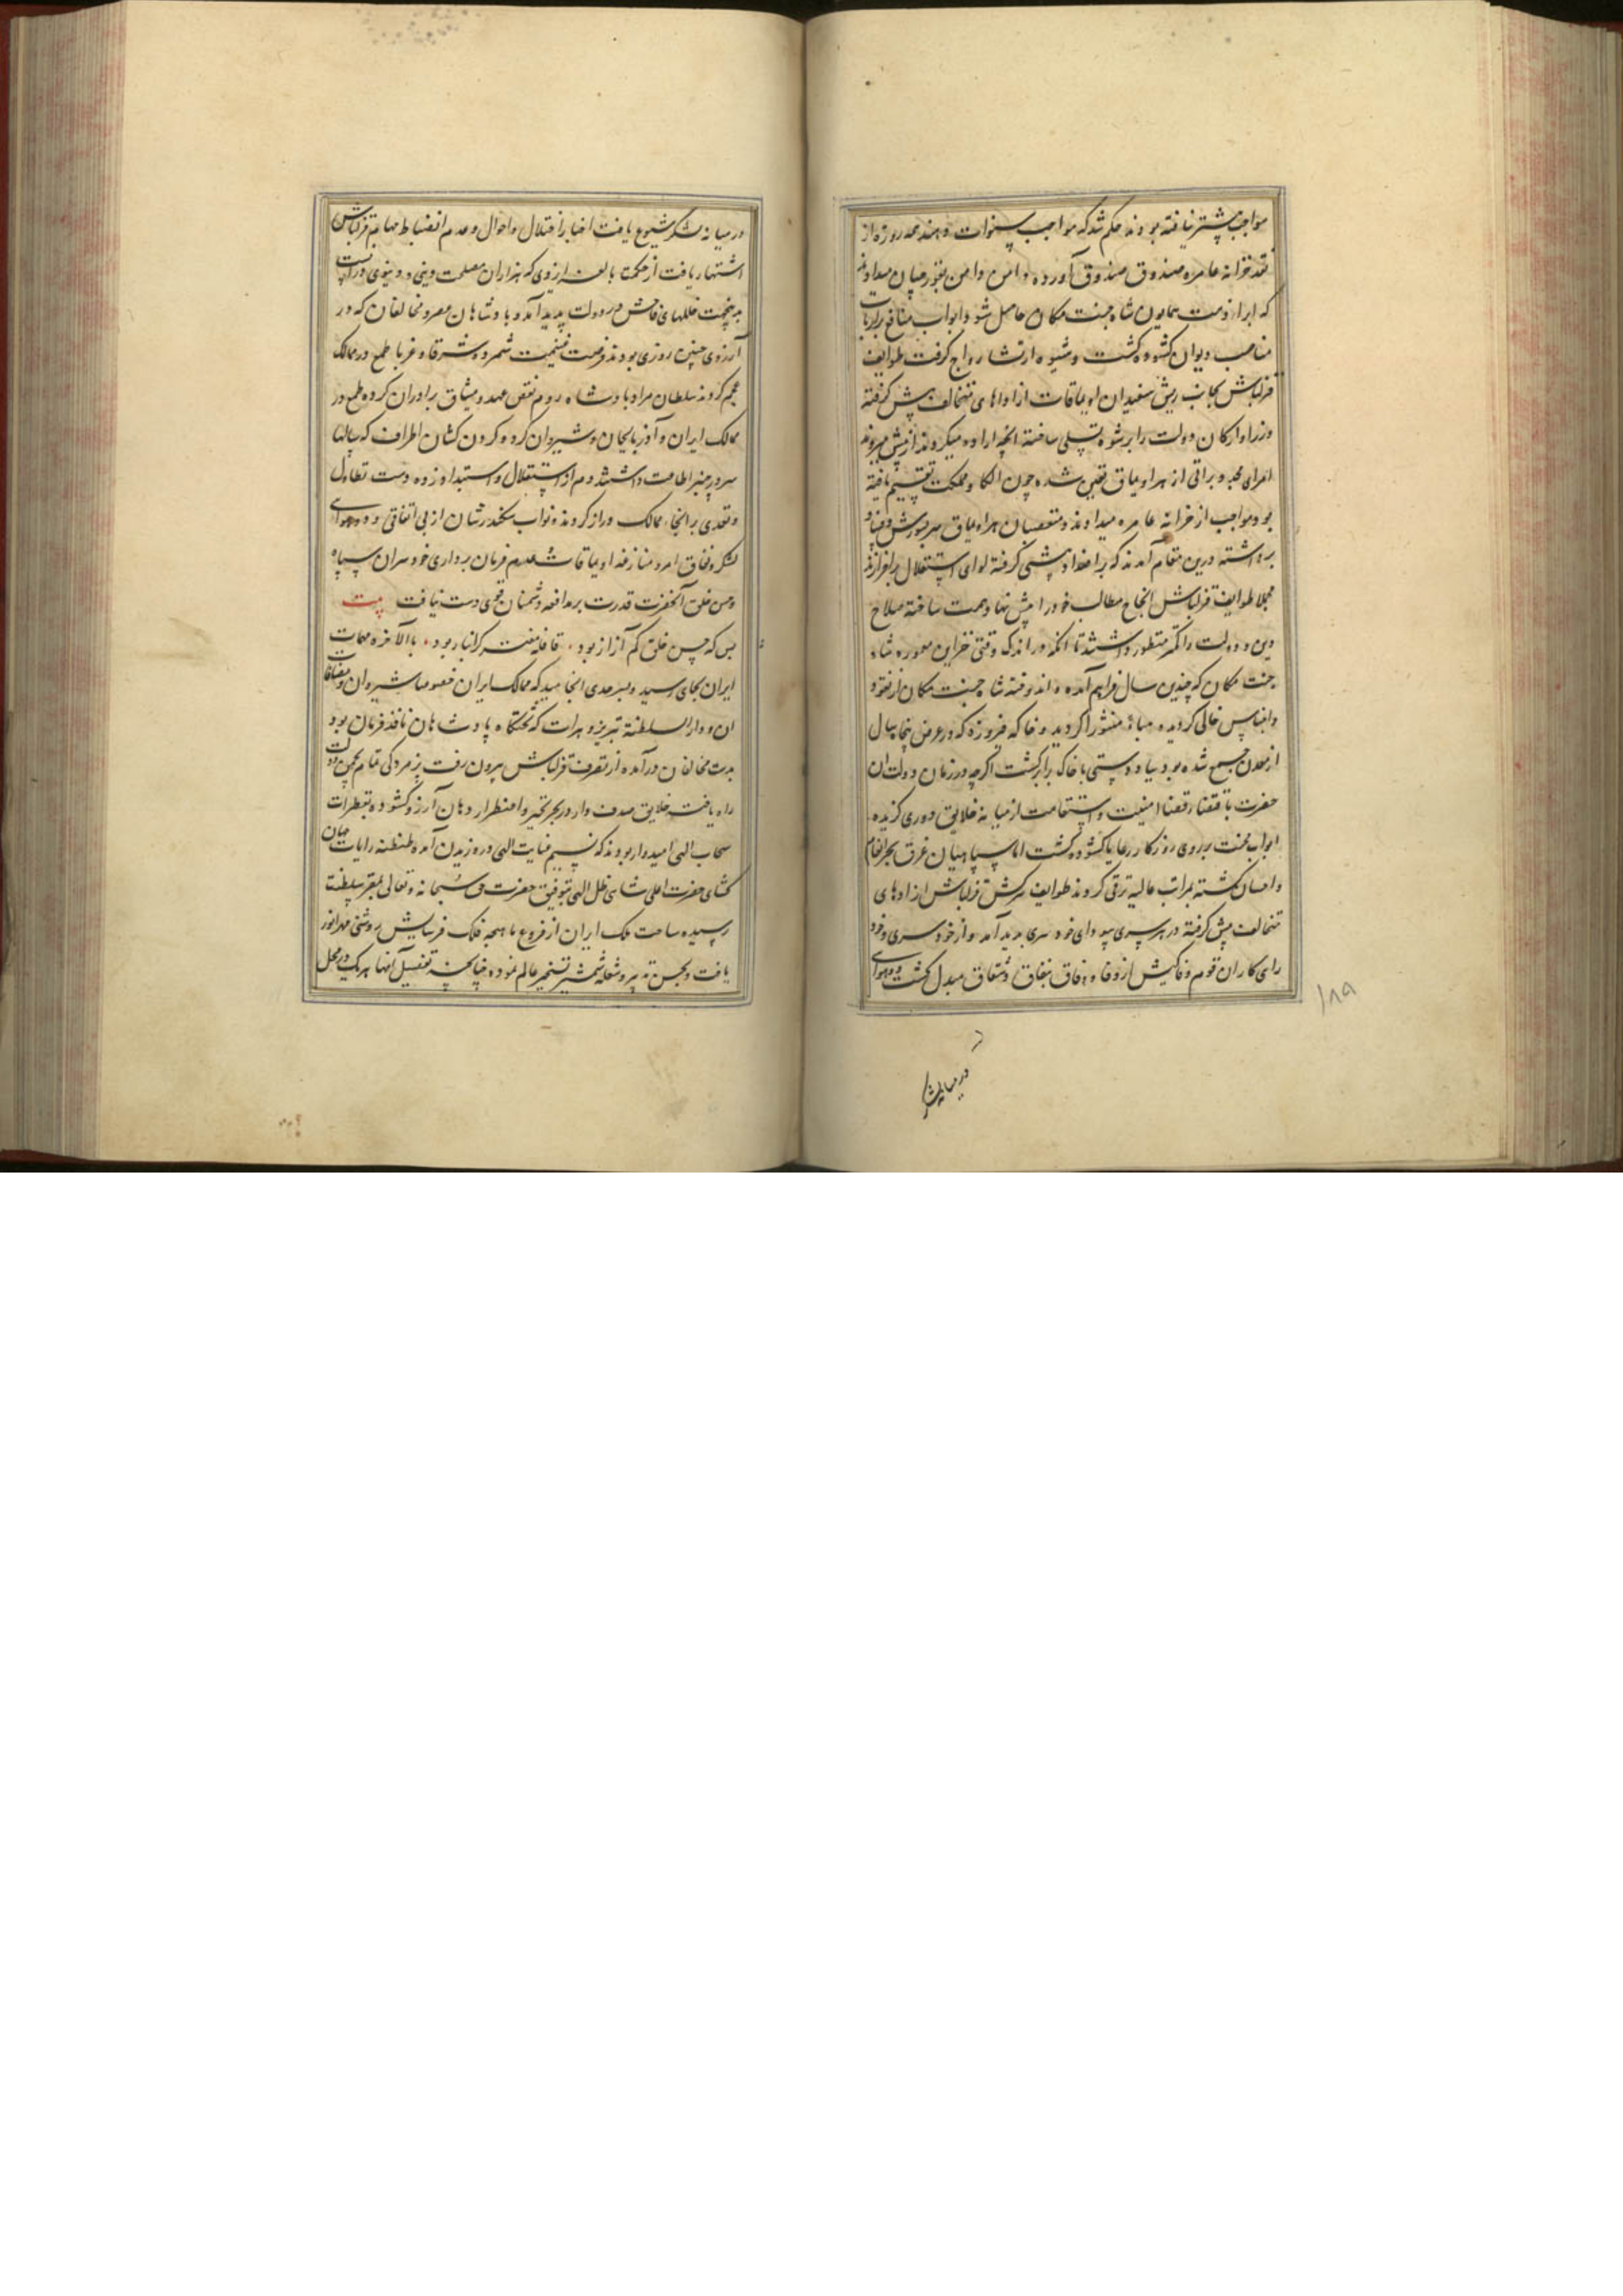 مواجب پیشتر نیافته بودند حکم شد که مواجب سنوات و هنده روزه از
نقد خزانه عامره صندوق صندوق آورده دامن دامن بقورچیان میدادند
که ابراء ذمت همایون شاه جنت مکان حاصل شود ابواب منافع بر ارباب
مناصب دیوان کشوده کشت و شیوه ارتشا رواج کرفت طوایف
قزلباش بجانب ریش سفیدان اویماقات از اداهای تخالف پیش کرفته
وزرا و ارکان دولت را برشوه تسلی ساخته انچه اراده میکردند از پیش میبردند
امرای مجد براقی از هر اویماق تعیین شده چون الکا و مملکت تقسیم یافته
بود مواجب از خزانه عامره میدادند و متعصبان هر اویماق سر بشورش و فساد
برداشته درین مقام آمدند که بر اضداد پیشی کرفته لوای استقلال برافرازند
مجملا طوایف قزلباش انجاح مطالب خود را پیش نهاد همت ساخته صلاح
دین و دولت را کمتر منظور داشتند تا انکه در اندک وقتی خزاین معموره شاه
جنت مکان که چندین سال فراهم آمده و اندوخته شاه جنت مکان از نقود
و اجناس خالی کردیده هباءً منثورا کردید و خاکه فیروزه که در عرض پنجاه سال
از معدن جمع شده بود بباد دستی با خاک برابر کشت اکرچه در زمان دولت ان
حضرت باقتضاء قضا امنیت و استقامت از میانه خلایق دوری کزیده
ابواب محنت بر روی روزکار رعایا کشوده کشت اما سپاهیان غرق بحر انعام
و احسان کشته بمراتب عالیه ترقی کردند طوایف سرکش قزلباش از اداهای
تخالف پیش کرفته در هر سری سودای خودسری پدید آمد و از خودسری و خود
رای کاران قوم وفاکیش از وفا و وفاق بنفاق و شقاق مبدل کشت و دوهوای
۱۸۹
در میانه لشکر
در میانه لشکر شیوع یافت اخبار اختلال احوال و عدم انضباط مهام قزلباش
اشتهار یافت از حکمت بالغه ایزدی که هزاران مصلحت دینی و دنیوی در آنست
بدینجهت خللهای فاحش در دولت پدید آمد و بادشاهان عصر و مخالفان که در
آرزوی چنین روزی بودند فرصت غنیمت شمرده شرقا و غربا طمع در ممالک
عجم کردند سلطان مراد بادشاه روم نقض عهد و میثاق برادران کرده طمع در
ممالک ایران و آذربایجان و شیروان کرده کردن کشان اطراف که سالها
سر در چنبر اطاعت داشتند دم از استقلال و استبداد زده دست تطاول
و تعدی بر انحاء ممالک دراز کردند و نواب سکندر شان از بی اتفاقی و دوهوای
لشکر و نفاق امرا و منازعه اویماقات و عدم فرمان برداری خودسران سپاه
و حسن خلق آنحضرت قدرت بر مدافعه دشمنان قوی دست نیافت بیت
بس که حسن خلق کم آزار بود قافله بالاخره مهمات
ایران بجای رسید و بسرحدی انجامید که ممالک ایران خصوصا شیروان و مضافات
ان و دارالسلطنة تبریز و هرات که تختکاه پادشاهان نافذ فرمان بود
بدست مخالفان درآمده از تصرف قزلباش بیرون رفت پژمردکی تمام بچمن دولت
راه یافت خلایق صدف وار در بحر تحیر و اضطرار دهان آرزو کشوده بقطرات
سحاب الهی امیدوار بودند که نسیم عنایت الهی در وزیدن آمده طنطنه رایات جهان
کشای حضرت اعلی شاهی ظل الهی بتوفیق حضرت حق سبحانه و تعالی بمقر سلطنت
رسیده ساحت ملک ایران از فروغ ماهچه فلک فرسایش روشنی مهر انور
یافت و بحسن تدبیر و شعله شمشیر تسخیر عالم نموده چنانچه تفصیل انها هر یک در محل